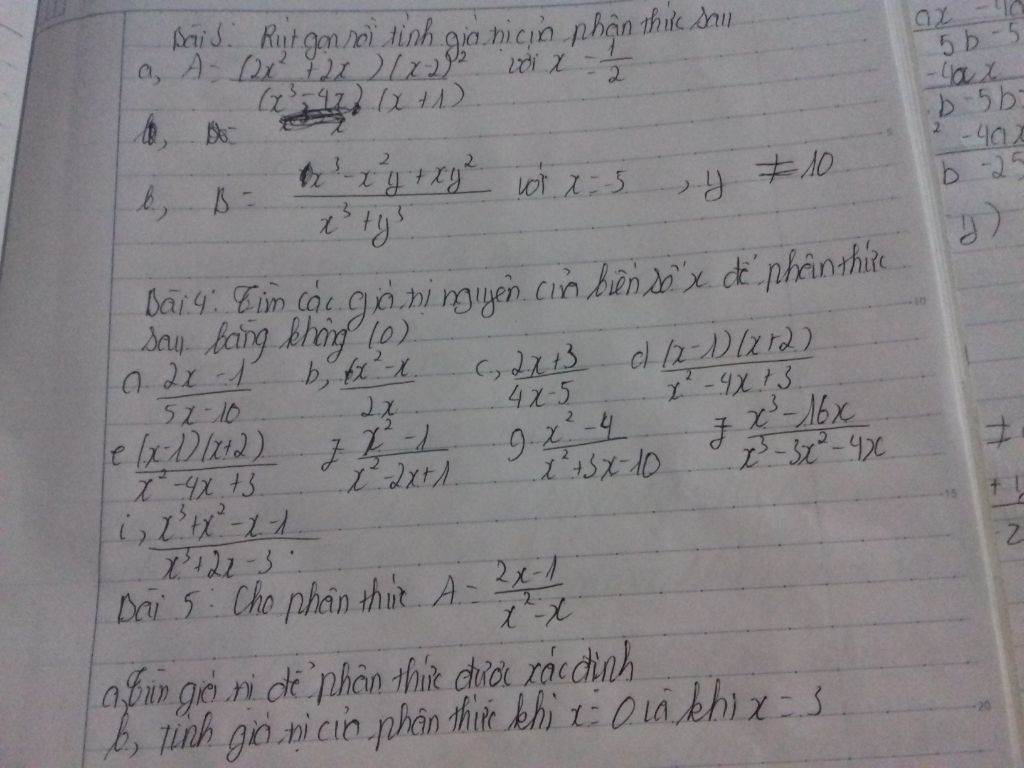 Bài 3: Rút gọn rồi tính giá trị của phân thức sau
a, A = (2x² + 2x)(x-2)² / (x³-4x)(x+1) với x = 1/2
b, B =
b, B = x³-x²y+xy² / x³+y³ với x = -5, y ≠ 10
Bài 4: Tìm các giá trị nguyên của biến số x để phân thức
sau bằng không (0)
a 2x-1 / 5x-10 b, x²-x / 2x c, 2x+3 / 4x-5 d (x-1)(x+2) / x²-4x+3
e (x-1)(x+2) / x²-4x+3 f x²-1 / x²-2x+1 g x²-4 / x²+3x-10 f x³-16x / x³-3x²-4x
i, x³+x²-x-1 / x³+2x-3
Bài 5: Cho phân thức A = 2x-1 / x²-x
a, Tìm giá trị để phân thức được xác định
b, Tính giá trị của phân thức khi x = 0 và khi x = 3
ax - 4a
5b - 5
-4ax
b - 5b
² - 4ax
b - 25
y)
≠
10
15
20